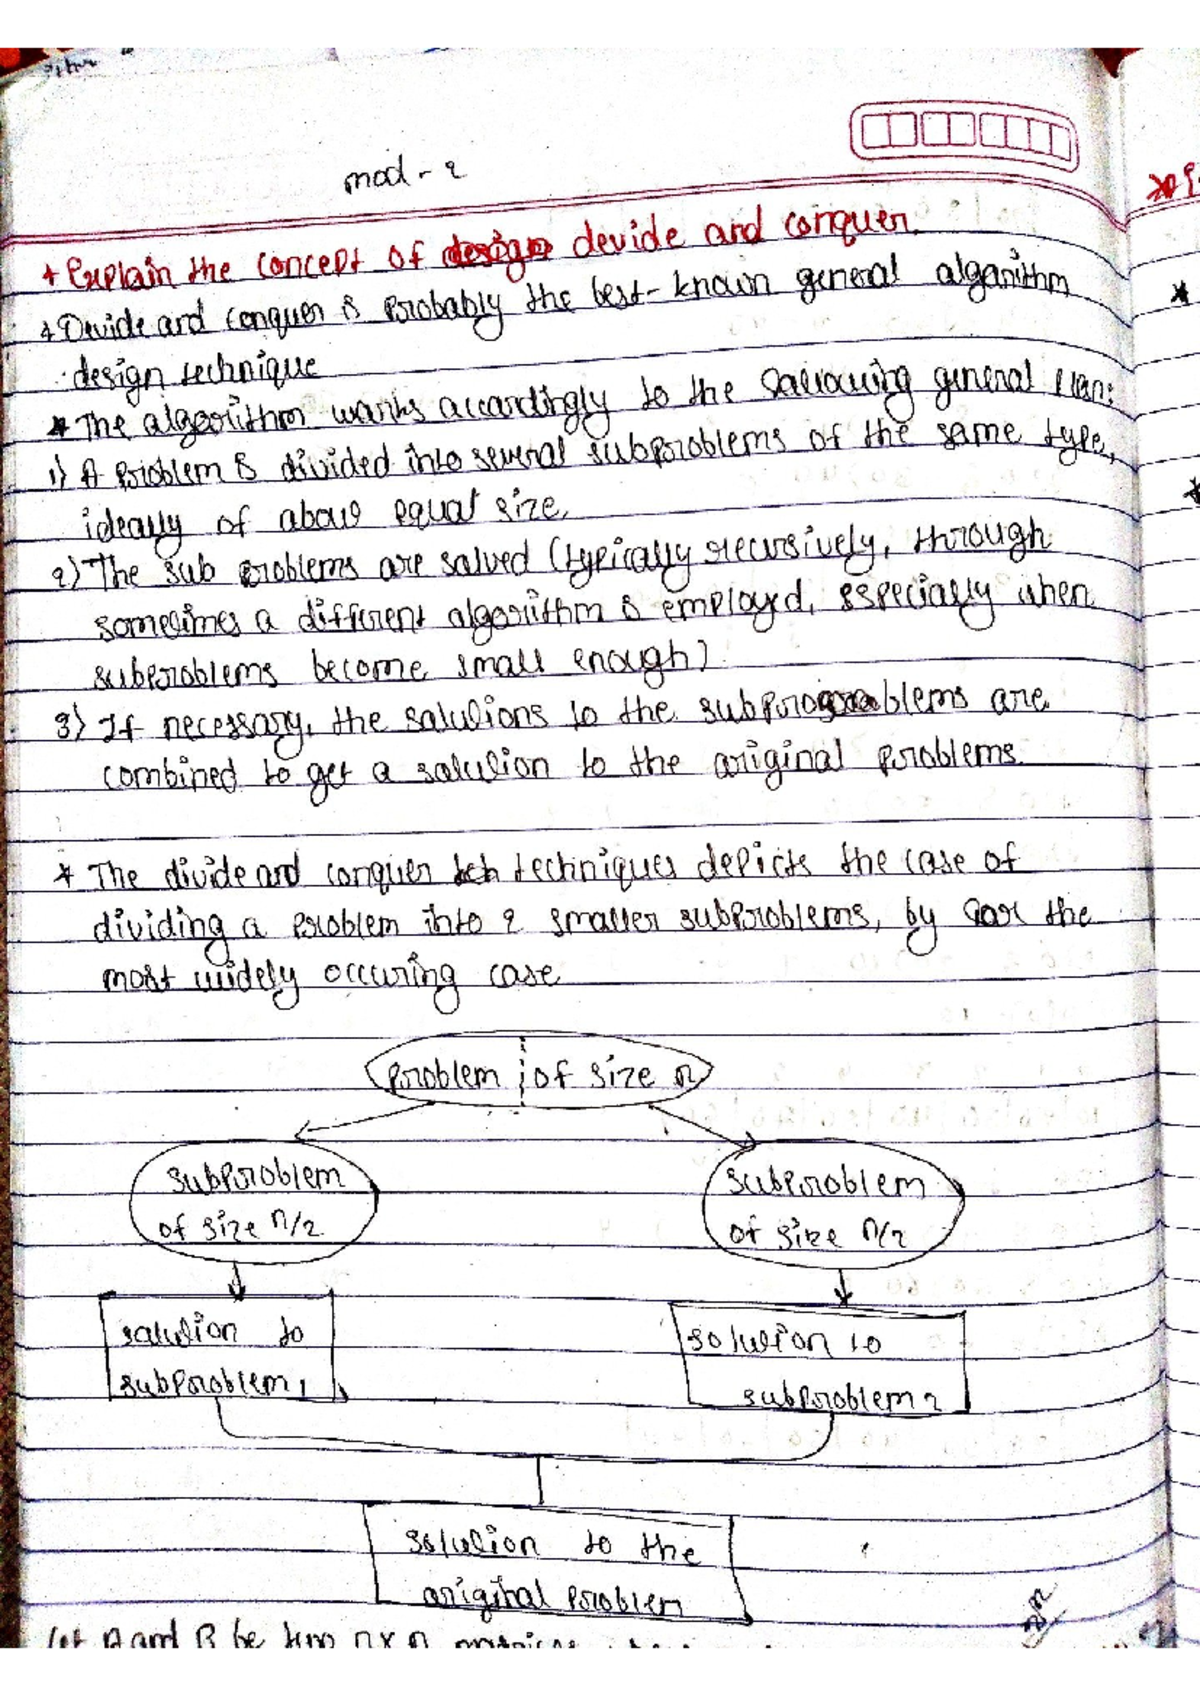 mod - 2
* Explain the concept of design devide and conquer.
* Divide and conquer is probably the best-known general algorithm
design technique
* The algorithm works accordingly to the following general plan:
1) A problem is divided into several subproblems of the same type,
ideally of about equal size.
2) The sub problems are solved (typically recursively, through
sometimes a different algorithm is employed, especially when
subproblems become small enough)
3) If necessary, the solutions to the subproblems are
combined to get a solution to the original problems.
* The divide and conquer tch techniques depicts the case of
dividing a problem into 2 smaller subproblems, by far the
most widely occuring case
problem of size n
subproblem
of size n/2
subproblem
of size n/2
solution to
subproblem 1
solution to
subproblem 2
solution to the
original problem
let A and B be two n x n